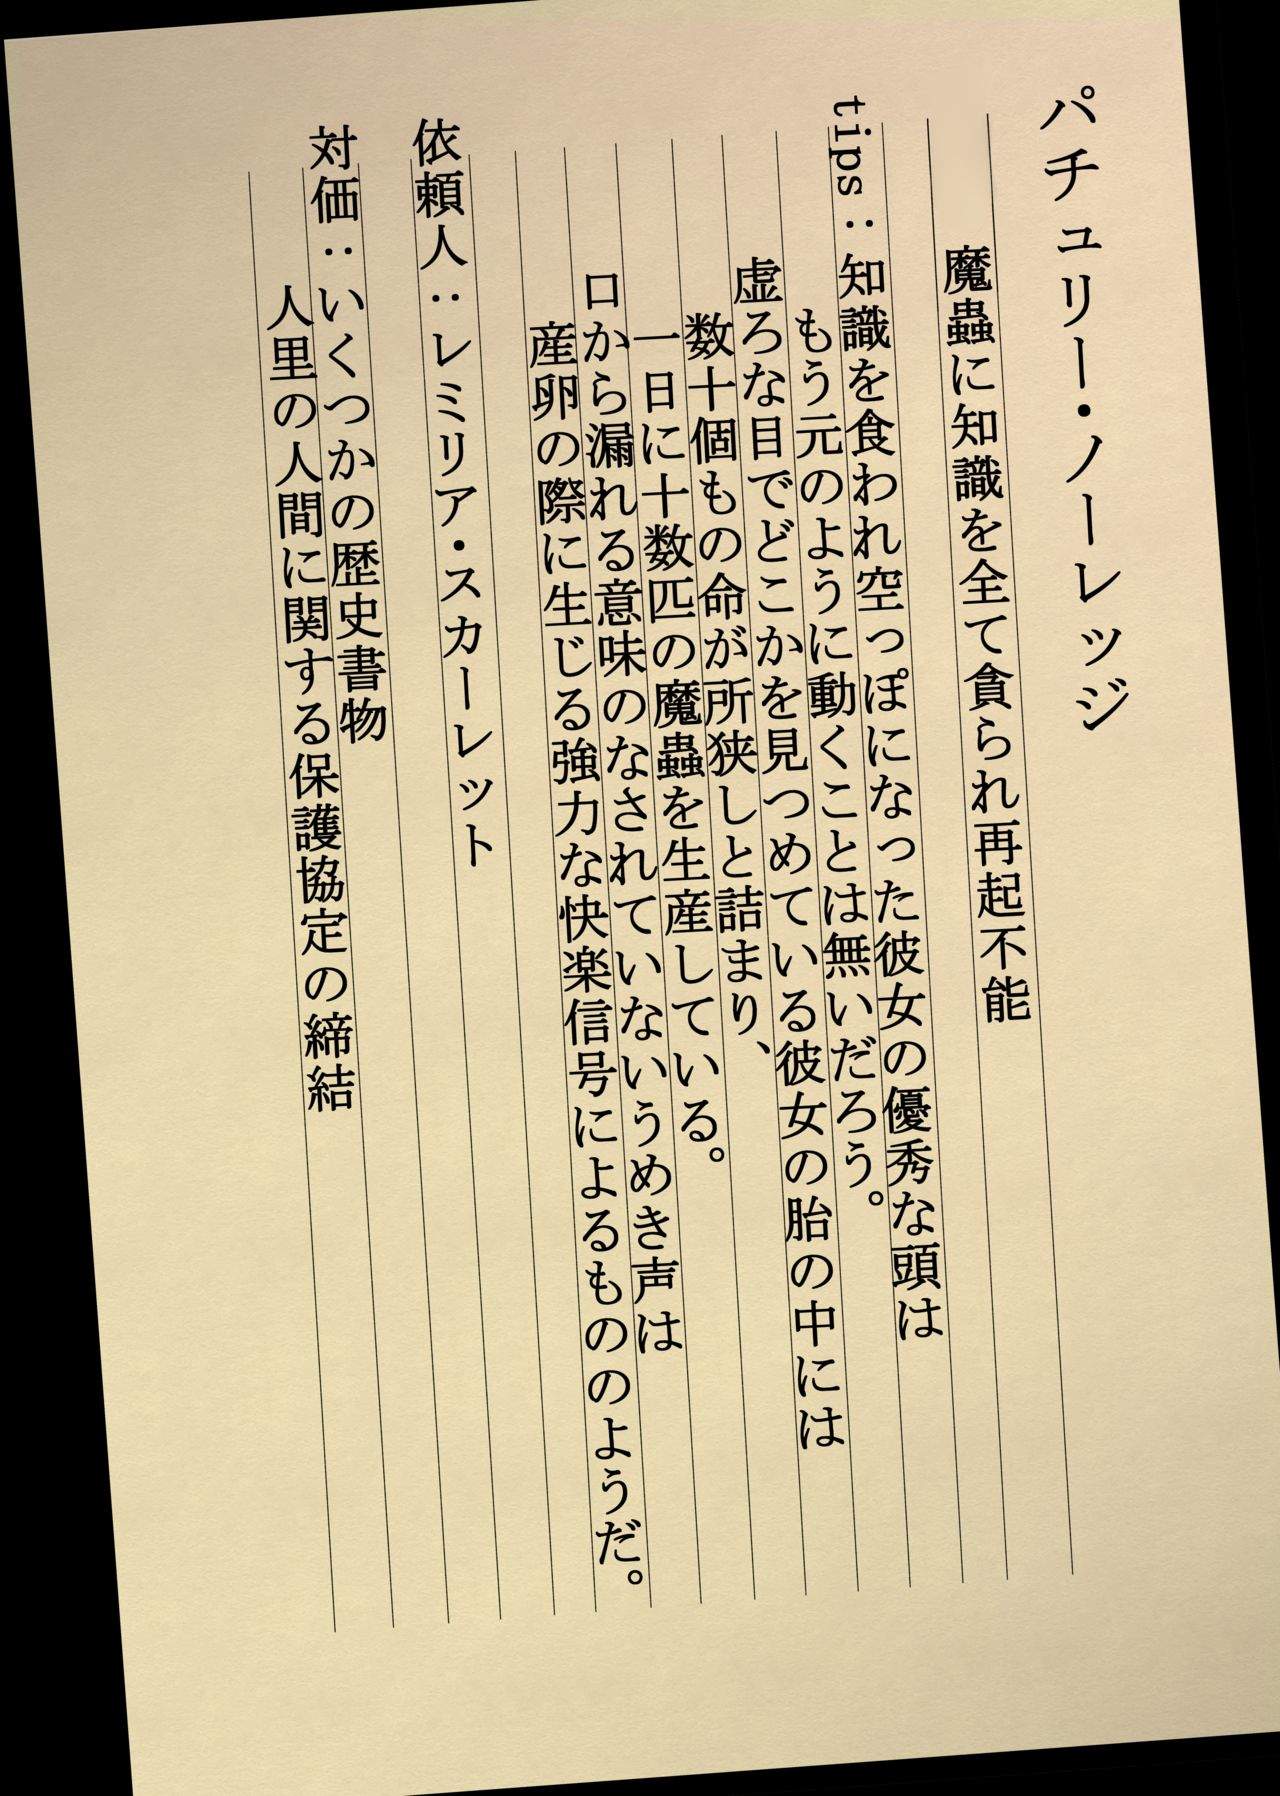 パチュリー・ノーレッジ
魔蟲に知識を全て貪られ再起不能
tips：知識を食われ空っぽになった彼女の優秀な頭は
もう元のように動くことは無いだろう。
虚ろな目でどこかを見つめている彼女の胎の中には
数十個もの命が所狭しと詰まり、
一日に十数匹の魔蟲を生産している。
口から漏れる意味のなされていないうめき声は
産卵の際に生じる強力な快楽信号によるもののようだ。
依頼人：レミリア・スカーレット
対価：いくつかの歴史書物
人里の人間に関する保護協定の締結